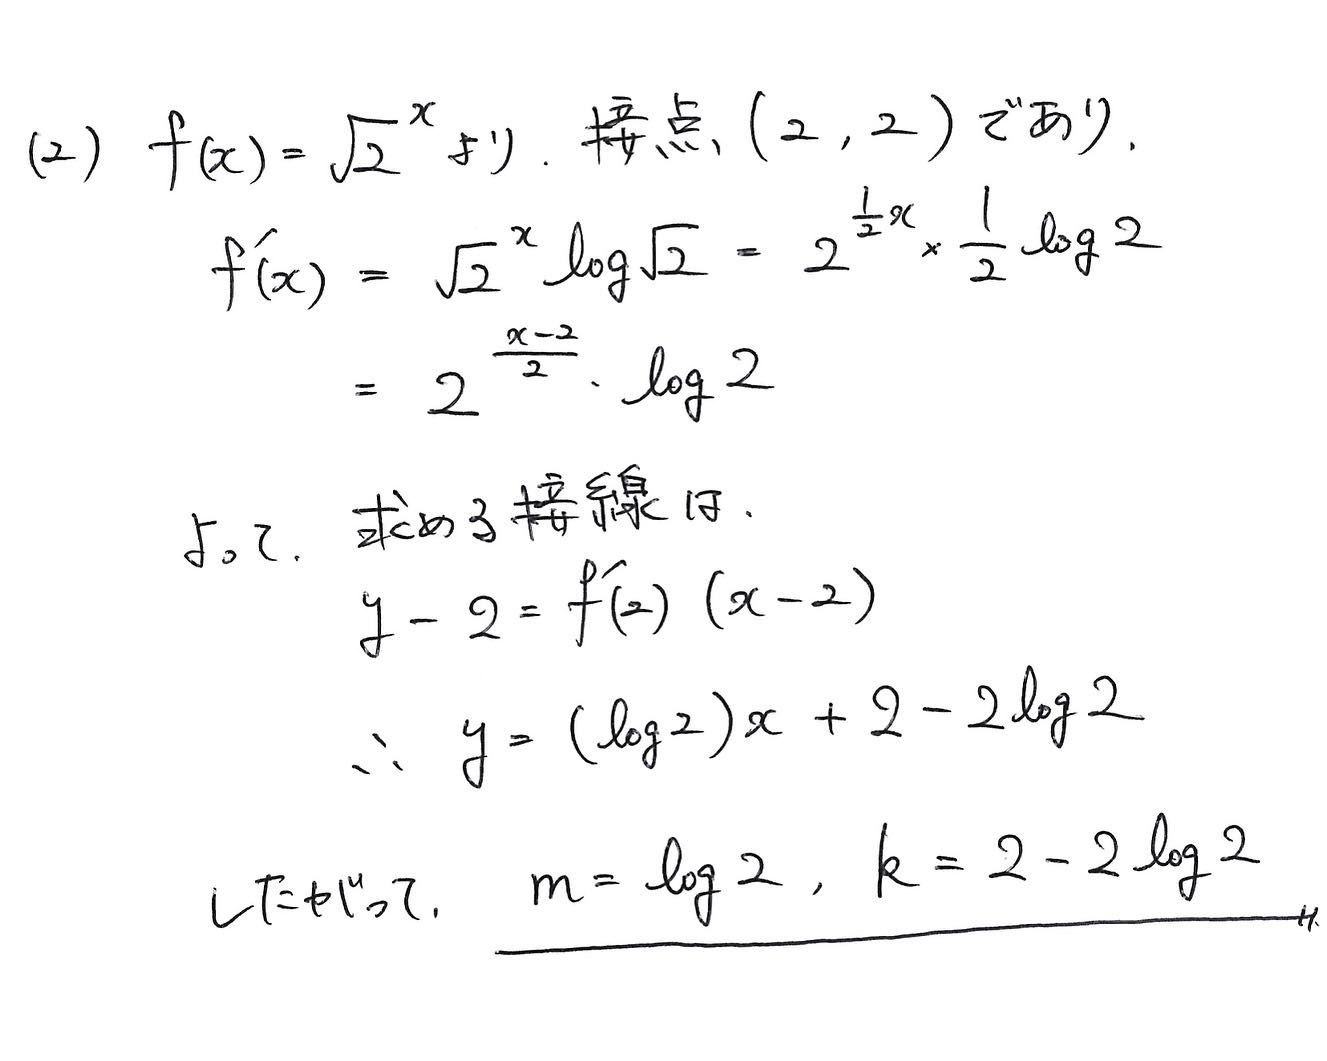 (2) f(x) = √2^x より. 接点 (2, 2) であり.
f'(x) = √2^x log√2 = 2^{\frac{1}{2}x} × \frac{1}{2} log 2
= 2^{\frac{x-2}{2}} · log 2
よって. 求める接線は.
y - 2 = f'(2) (x - 2)
∴ y = (log 2)x + 2 - 2 log 2
したがって. m = log 2, k = 2 - 2 log 2